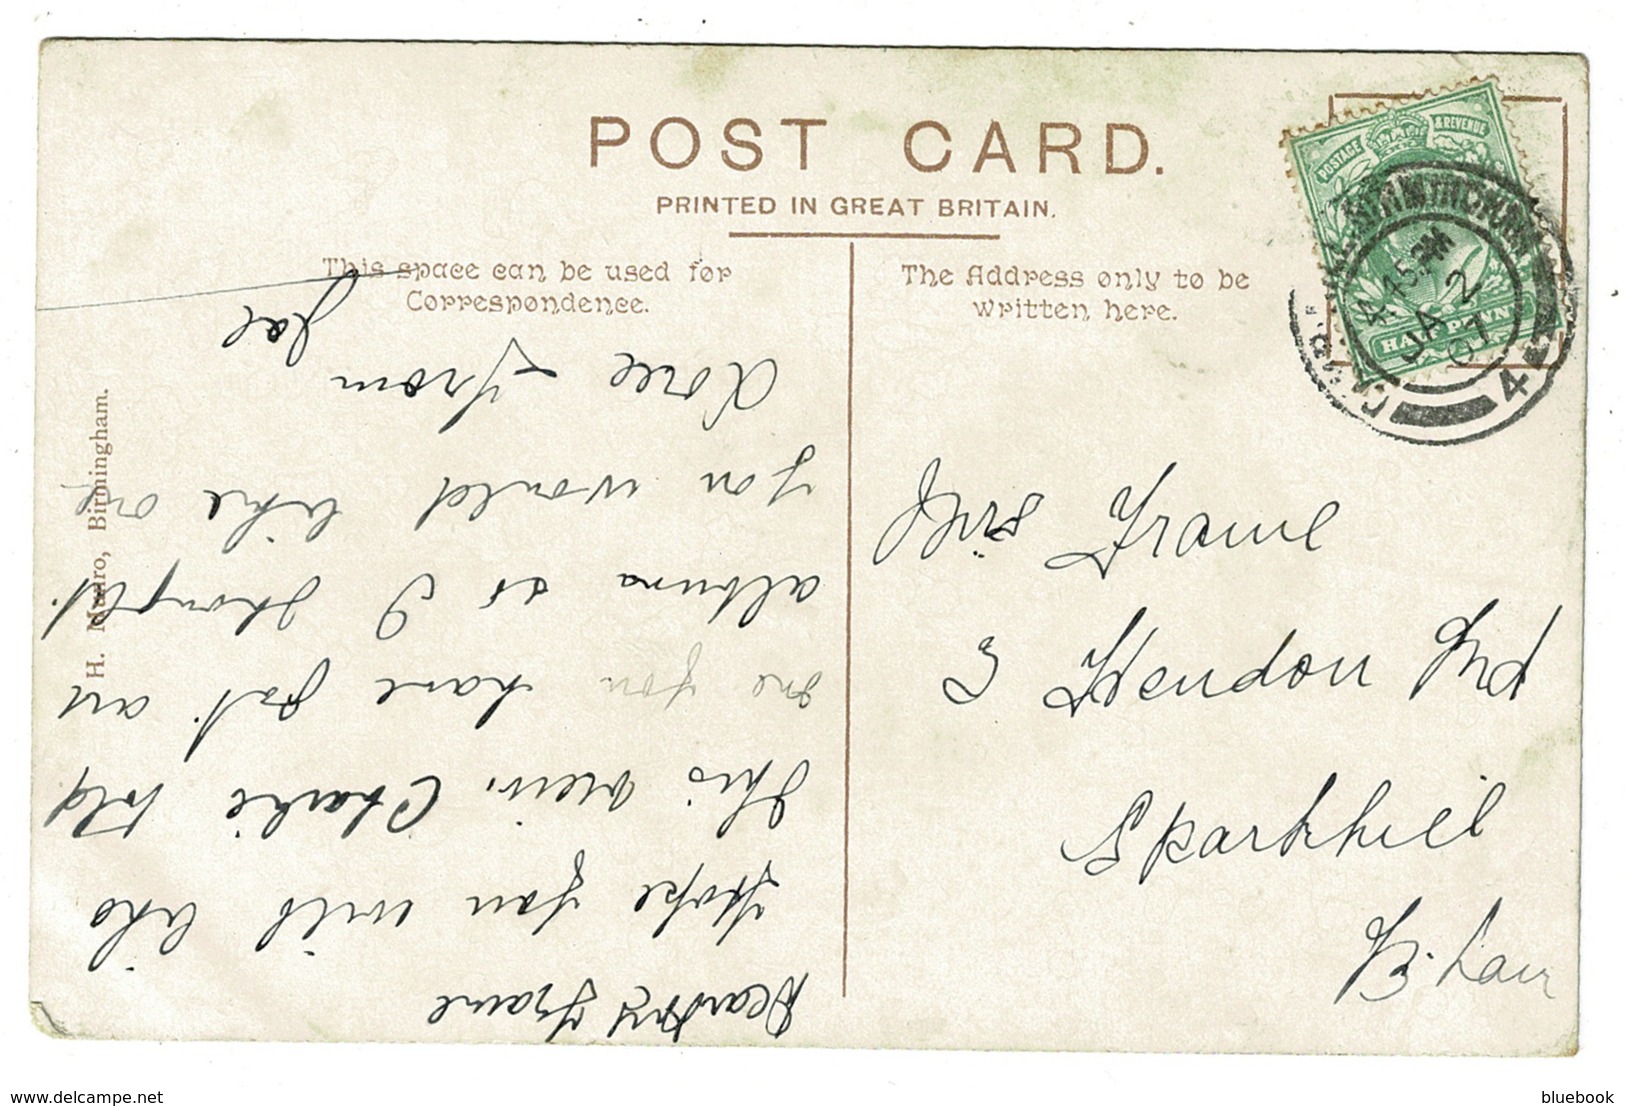 POST CARD.
PRINTED IN GREAT BRITAIN.
This space can be used for
Correspondence.
The Address only to be
written here.
POSTAGE & REVENUE
HALFPENNY
4.45 PM
JA 2
07
4
H. Munro, Birmingham.
Miss Frame
3 Hendon Rd
Sparkhill
B.ham
Dear Frame
Hope you will like
this view. Charlie told
me you have got an
album so I thought.
you would like one
Love from
www.delcampe.net
bluebook